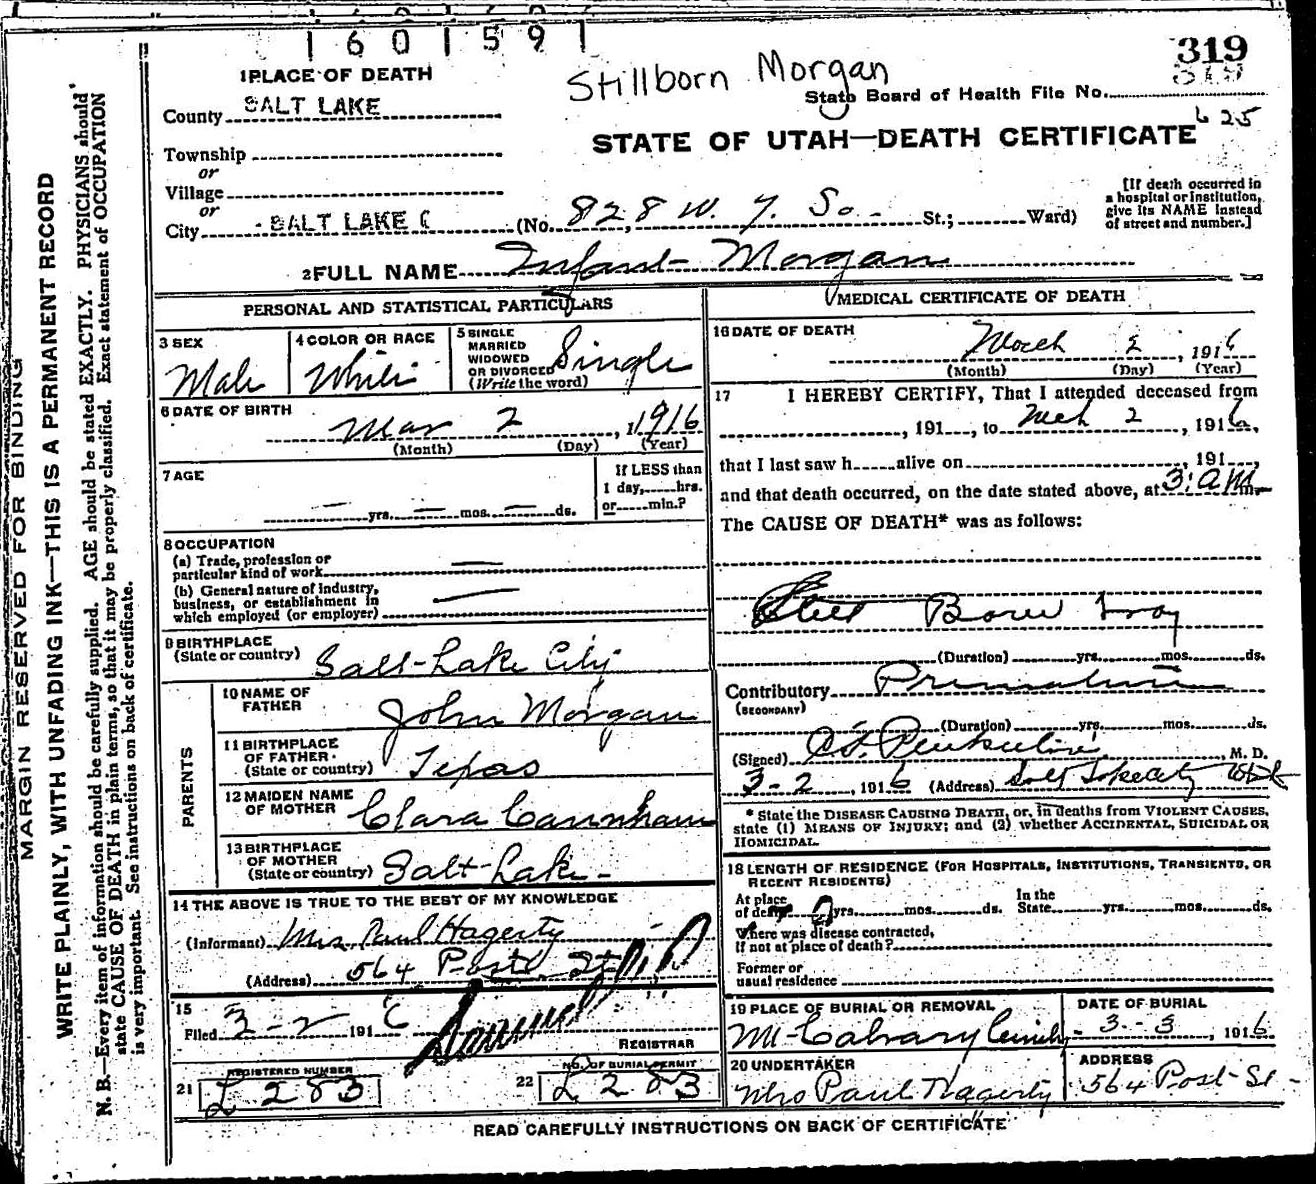 1601591
319
319
Stillborn Morgan
1 PLACE OF DEATH
State Board of Health File No.
County SALT LAKE
625
STATE OF UTAH—DEATH CERTIFICATE
Township
or
Village
or
City SALT LAKE C (No. 828 W. 7. So. St.; Ward)
[If death occurred in
a hospital or institution,
give its NAME instead
of street and number.]
2 FULL NAME Infant Morgan
PERSONAL AND STATISTICAL PARTICULARS
3 SEX
Male
4 COLOR OR RACE
White
5 SINGLE
MARRIED
WIDOWED
OR DIVORCED
(Write the word)
Single
6 DATE OF BIRTH
Mar 2, 1916
(Month) (Day) (Year)
7 AGE
— yrs. — mos. — ds.
If LESS than
1 day, hrs.
or min.?
8 OCCUPATION
(a) Trade, profession or
particular kind of work —
(b) General nature of industry,
business, or establishment in
which employed (or employer) —
9 BIRTHPLACE
(State or country) Salt Lake City
PARENTS
10 NAME OF
FATHER John Morgan
11 BIRTHPLACE
OF FATHER
(State or country) Texas
12 MAIDEN NAME
OF MOTHER Clara
13 BIRTHPLACE
OF MOTHER
(State or country) Salt-Lake-
14 THE ABOVE IS TRUE TO THE BEST OF MY KNOWLEDGE
(Informant) Mrs. Paul Hagerty
(Address) 564 Post St
15
Filed 3-2 1916
REGISTRAR
21 REGISTERED NUMBER
L 283
22 NO. OF BURIAL PERMIT
L 283
MEDICAL CERTIFICATE OF DEATH
16 DATE OF DEATH
March 2, 1916
(Month) (Day) (Year)
17 I HEREBY CERTIFY, That I attended deceased from
, 191 , to Mch 2, 1916,
that I last saw h alive on , 191 ,
and that death occurred, on the date stated above, at 3: a m.
The CAUSE OF DEATH* was as follows:
Still Born
(Duration) yrs. mos. ds.
Contributory
(SECONDARY)
(Duration) yrs. mos. ds.
(Signed) M. D.
3-2, 1916 (Address) Salt Lake City Utah
* State the DISEASE CAUSING DEATH, or, in deaths from VIOLENT CAUSES,
state (1) MEANS OF INJURY; and (2) whether ACCIDENTAL, SUICIDAL OR
HOMICIDAL.
18 LENGTH OF RESIDENCE (FOR HOSPITALS, INSTITUTIONS, TRANSIENTS, OR
RECENT RESIDENTS)
At place
of death yrs. mos. ds.
In the
State yrs. mos. ds.
Where was disease contracted,
if not at place of death?
Former or
usual residence
19 PLACE OF BURIAL OR REMOVAL
Mt-Calvary
DATE OF BURIAL
3-3, 1916
20 UNDERTAKER
Mrs Paul Hagerty
ADDRESS
564 Post-St-
READ CAREFULLY INSTRUCTIONS ON BACK OF CERTIFICATE
MARGIN RESERVED FOR BINDING
WRITE PLAINLY, WITH UNFADING INK—THIS IS A PERMANENT RECORD
N. B.—Every item of information should be carefully supplied. AGE should be stated EXACTLY. PHYSICIANS should
state CAUSE OF DEATH in plain terms, so that it may be properly classified. Exact statement of OCCUPATION
is very important. See instructions on back of certificate.